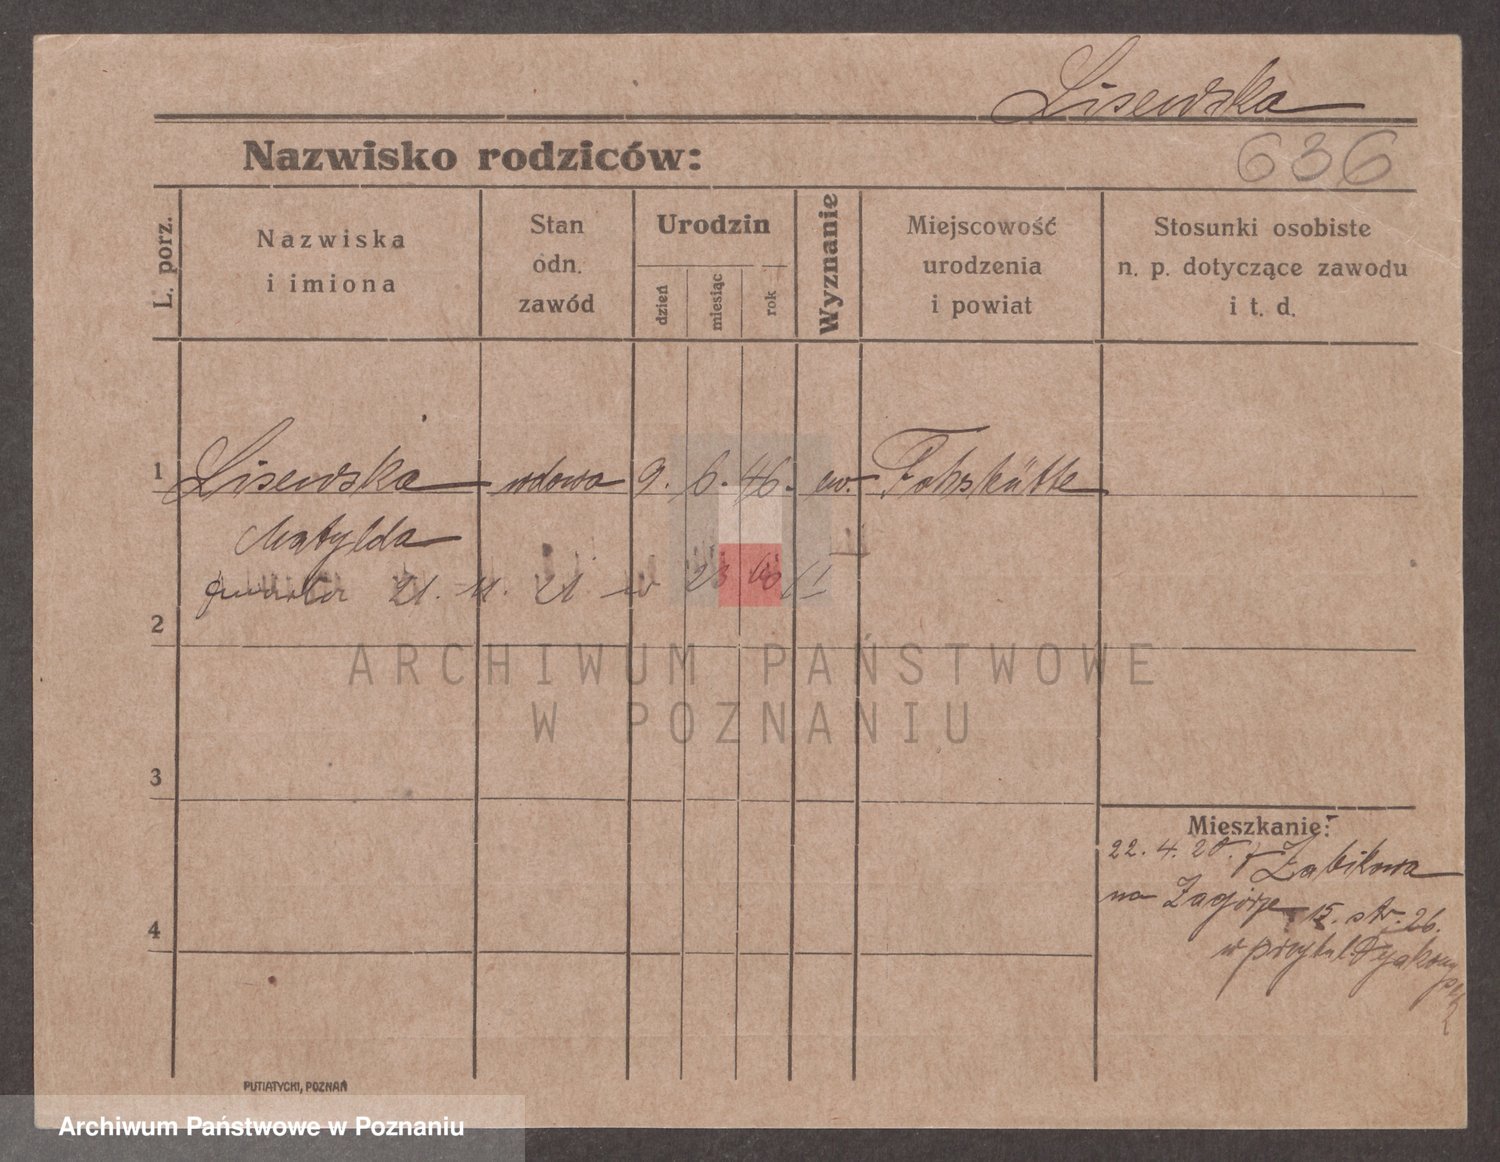 Lisewska
Nazwisko rodziców:
636
L. porz.
Nazwiska
i imiona
Stan
odn.
zawód
Urodzin
dzień
miesiąc
rok
Wyznanie
Miejscowość
urodzenia
i powiat
Stosunki osobiste
n. p. dotyczące zawodu
i t. d.
1 Lisewska wdowa 9. 6. 46. ew.
Matylda
21. 11. 21 w
2
ARCHIWUM PAŃSTWOWE
W POZNANIU
3
Mieszkanie:
22. 4. 20. z Żabikowa
na Zagórze 15. str. 26.
w przytul.
4
PUTIATYCKI, POZNAŃ
Archiwum Państwowe w Poznaniu